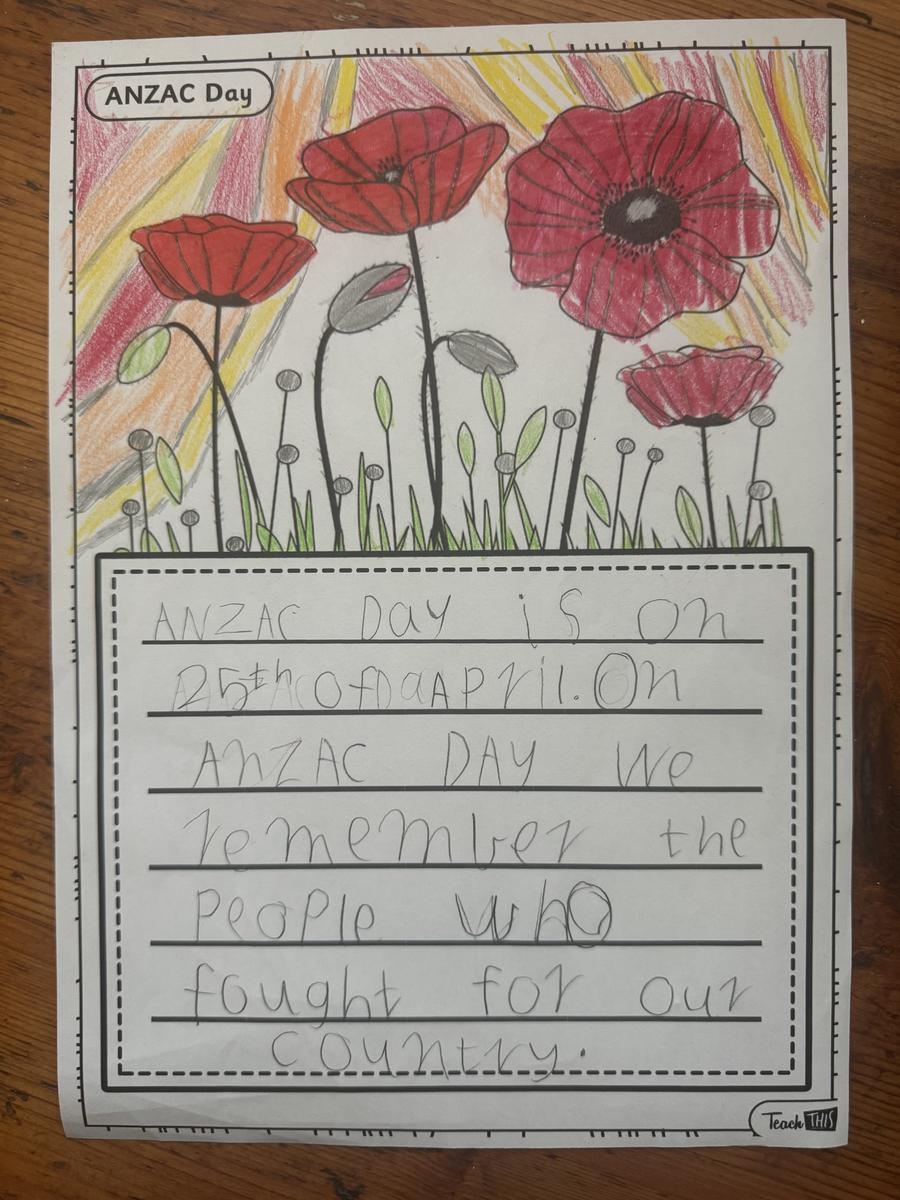 ANZAC Day
ANZAC Day is on
25th of April. On
ANZAC DAY we
remember the
People who
fought for our
country.
Teach THIS